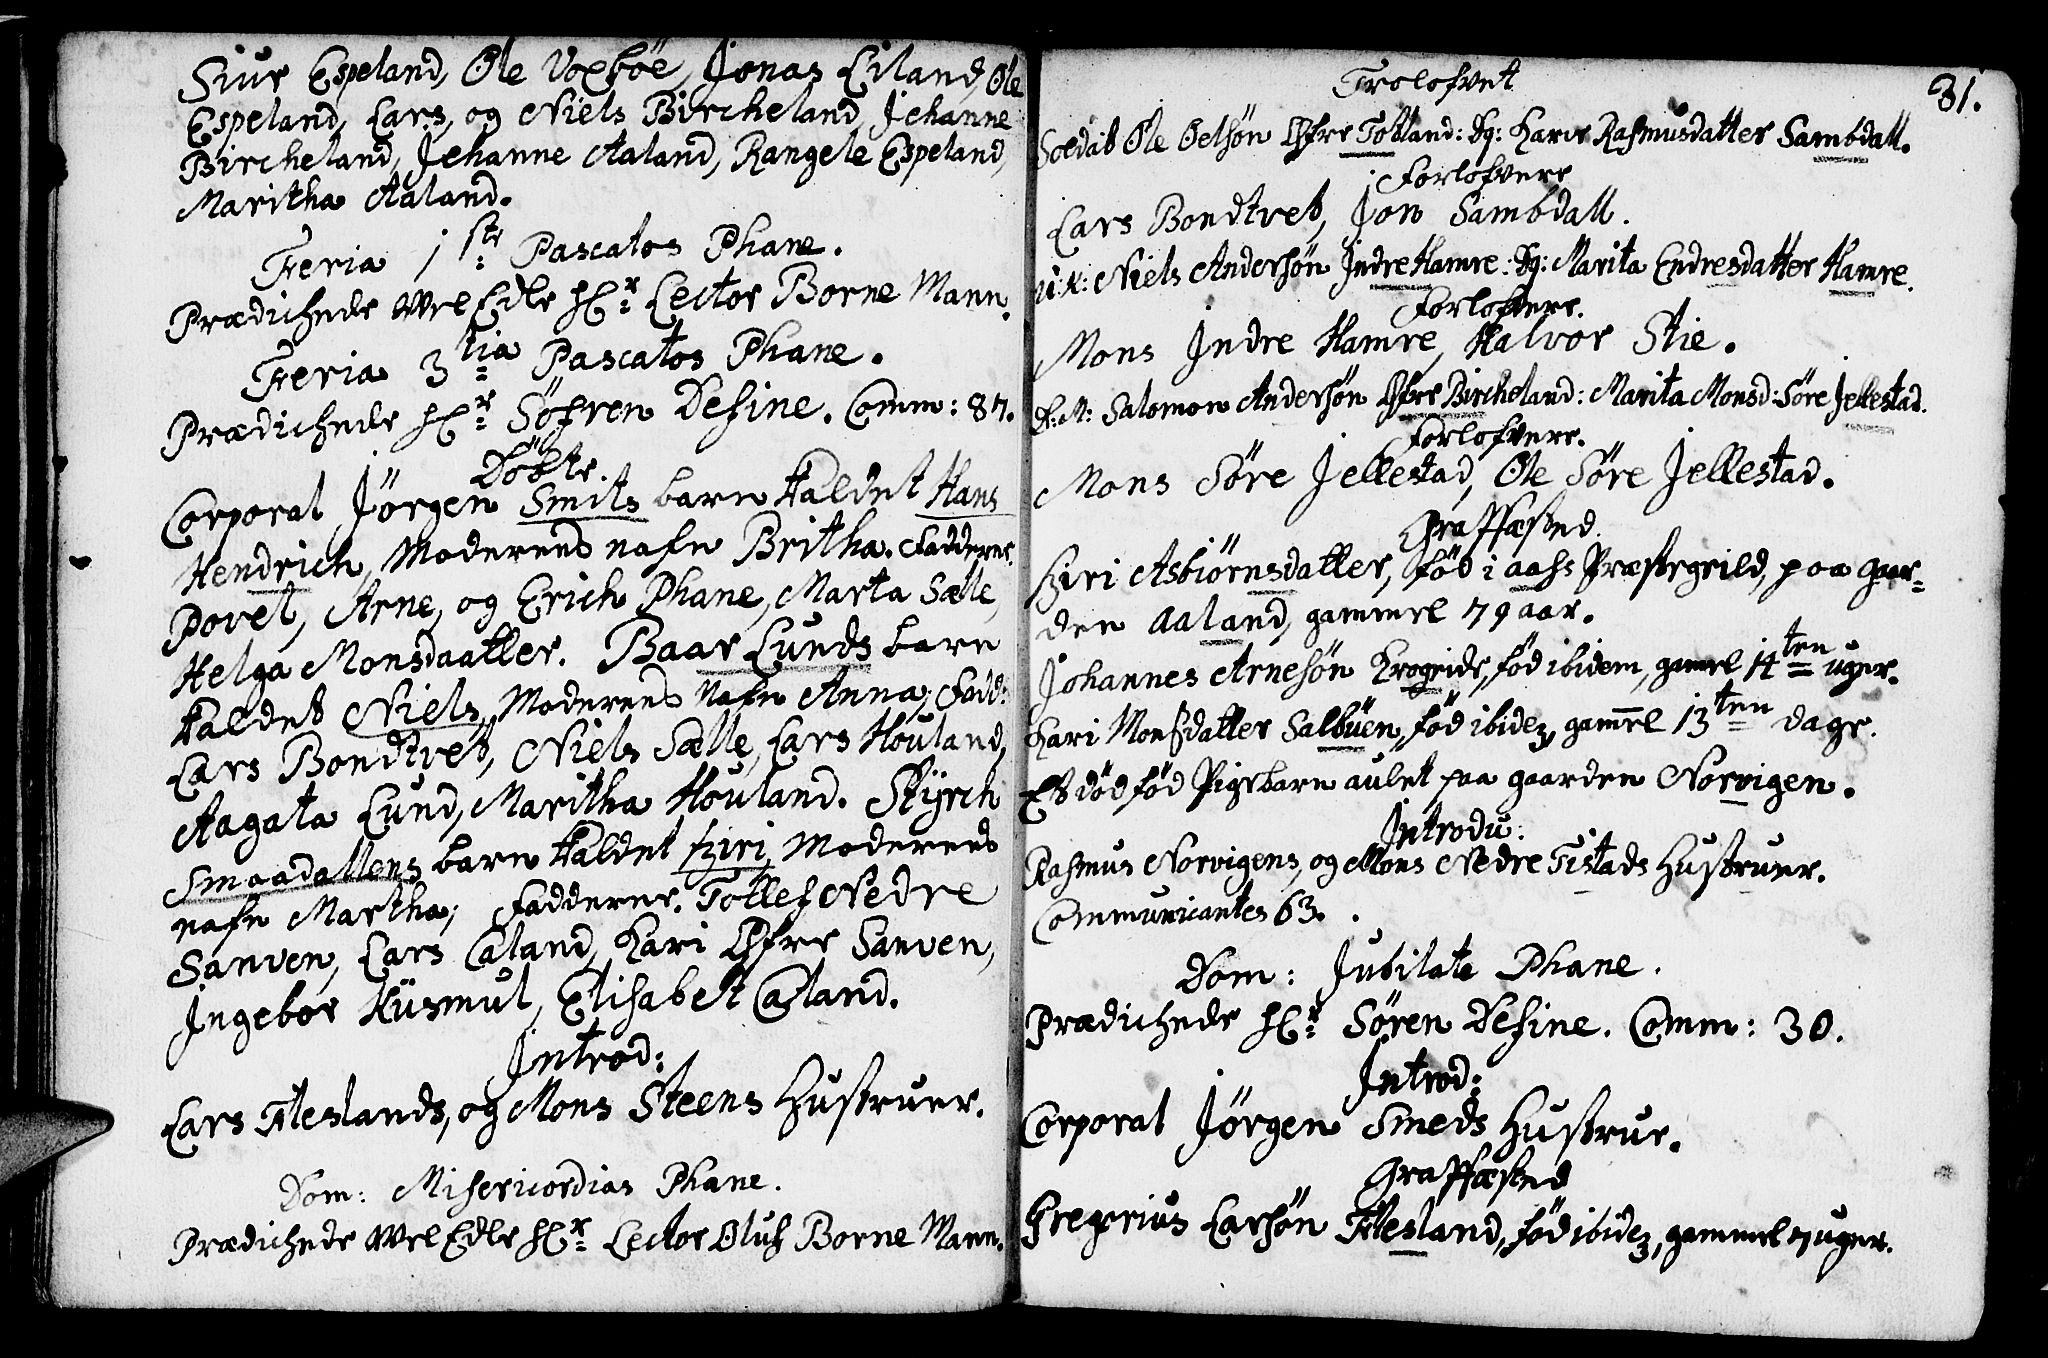 Siur Espeland, Ole Voxböe, Jonas Liland, Ole
Espeland, Lars, og Niels Bircheland, Jehanne
Bircheland, Jehanne Aaland, Rangele Espeland,
Maritha Aaland.
Feria 1ste Pascatos Phane.
Prædichede Wel Edle Hr: Lector Borne Mann.
Feria 3tia Pascatos Phane.
Prædichede Hr: Söfren Define. Comm: 87.
Döbte.
Corporal Jörgen Smits barn kaldet Hans
Hendrich, Moderens nafn Britha. Faddere.
Povel, Arne, og Erich Phane, Marta Sælle,
Helga Monsdaatter. Baar Lunds barn
kaldet Niels, Moderens Nafn Anna, Fadd:
Lars Bondtved, Niels Sælle, Lars Houland,
Aagata Lund, Maritha Houland. Styrch
Smaadallens barn kaldet Siri, Moderens
nafn Martha; Faddere. Tollef Nedre
Sanven, Lars Caland, Kari Öfre Sanven,
Ingebor Küsmul, Elisabet Caland.
Introd:
Lars Fleslands, og Mons Steens Hustruer.
Dom: Misericordias Phane.
Prædichede Wel Edle Hr: Lector Oluf Borne Mann.
31.
Trolofvet
Soldat Ole Oelsön Öfre Tofland: og: Karie Rasmusdatter Sambdall.
Forlofvere
Lars Bondtved, Jon Sambdall.
U:K: Niels Andersön Indre Hamre: og: Marita Endresdatter Hamre.
Forlofvere.
Mons Indre Hamre, Halvor Stie.
E:M: Salomon Andersön Öfre Bircheland: Marita Monsd: Söre Jellestad.
Forlofvere.
Mons Söre Jellestad, Ole Söre Jellestad.
Graffæsted.
Siri Asbiörnsdatter, föd i aass Præstegield, paa gaar-
den Aaland, gammel 79 aar.
Johannes Arnesön Krogeide, föd ibidem, gamel 14ten uger.
Kari Monsdatter Salbuen, föd ibidem, gammel 13ten dage.
Et död föd Pigebarn aulet paa gaarden Norvigen.
Introdu:
Rasmus Norvigens, og Mons Nedre Tistads Hustruer.
Communicantes 63.
Dom: Jubilate Phane.
Prædichede Hr: Sören Define. Comm: 30.
Introd:
Corporal Jörgen Smeds Hustrue.
Graffæsted
Gregorius Larsön Flesland, föd ibidem, gammel 7 uger.